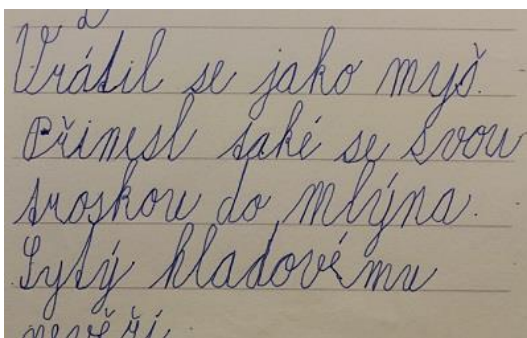 Vrátil se jako myš.
Přinesl také se svou
troskou do mlýna.
Sytý hladovému
nevěří.